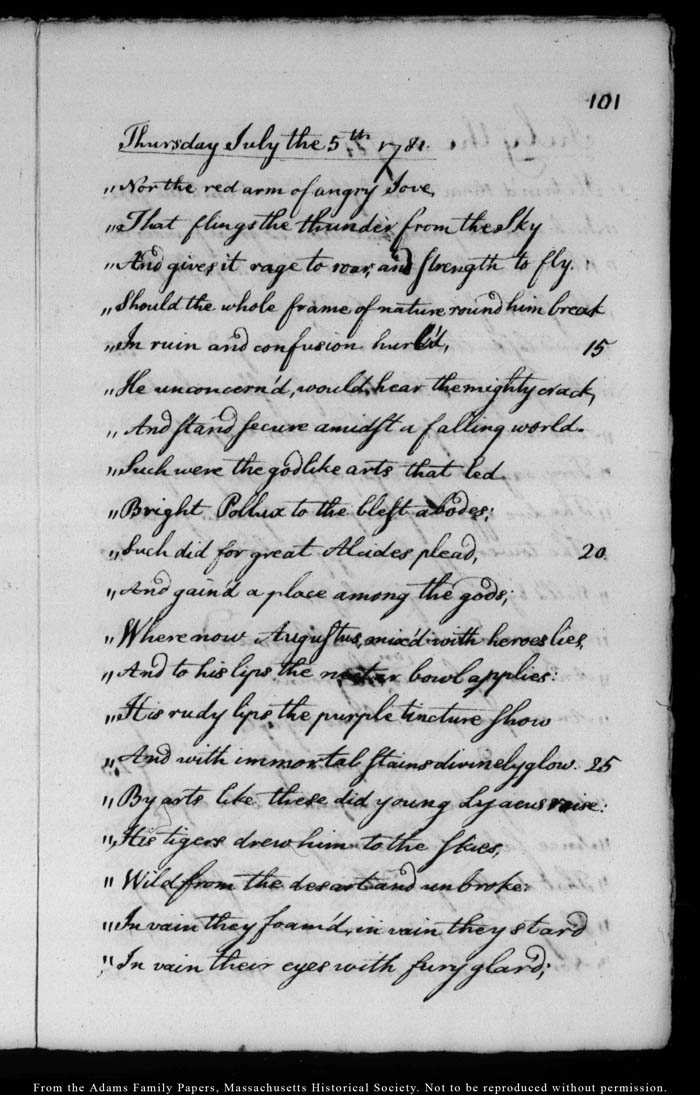 101
Thursday July the 5th 1781.
„Nor the red arm of angry Jove,
„That flings the thunder from the Sky
„And gives it rage to roar, and strength to fly.
„Should the whole frame of nature round him break
„In ruin and confusion hurl'd, 15
„He unconcern'd, would hear the mighty crack,
„And stand secure amidst a falling world.
„Such were the godlike arts that led
„Bright Pollux to the blest abodes;
„Such did for great Alcides plead, 20.
„And gain'd a place among the gods;
„Where now Augustus, mix'd with heroes lies,
„And to his lips the nectar bowl applies:
„His rudy lips the purple tincture show
„And with immortal stains divinely glow. 25
„By arts like these did young Lyaeus raise:
„His tigers drew him to the skies,
„Wild from the desart and unbroke:
„In vain they foam'd, in vain they star'd
„In vain their eyes with fury glar'd;
From the Adams Family Papers, Massachusetts Historical Society. Not to be reproduced without permission.